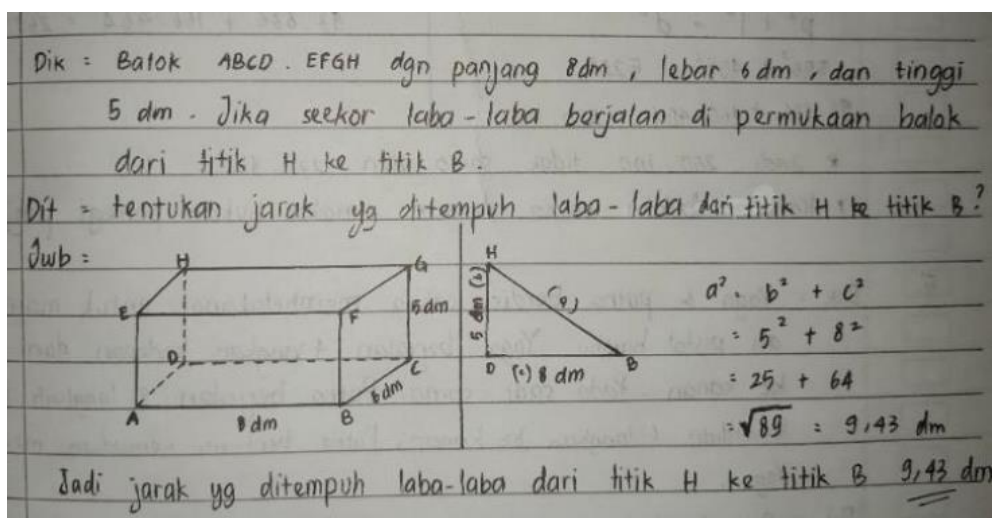 Dik = Balok ABCD . EFGH dgn panjang 8dm , lebar 6 dm , dan tinggi
5 dm . Jika seekor laba - laba berjalan di permukaan balok
dari titik H ke titik B .
Dit = tentukan jarak yg ditempuh laba - laba dari titik H ke titik B ?
Jwb =
H
G
E
F
5 dm
D
C
6 dm
A
8 dm
B
H
5 dm (b)
(a)
D
(c) 8 dm
B
a² = b² + c²
= 5² + 8²
= 25 + 64
= √89 = 9,43 dm
Jadi jarak yg ditempuh laba-laba dari titik H ke titik B 9,43 dm